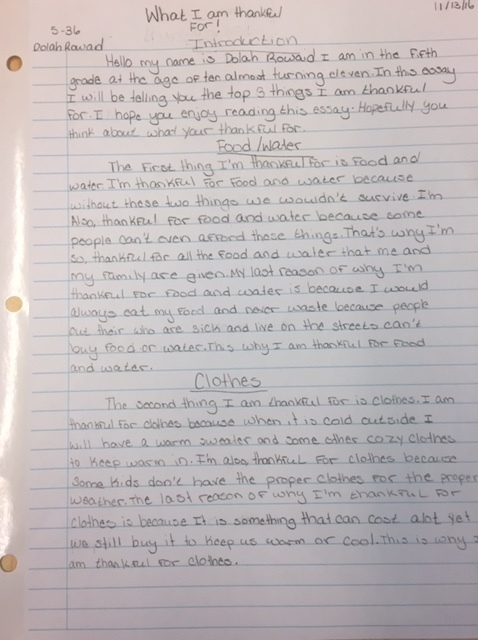 What I am thankful
For!
11/13/16
5-36
Dolah Rowad
Introduction
Hello my name is Dolah Rowaid I am in the fifth
grade at the age of ten almost turning eleven. In this essay
I will be telling you the top 3 things I am thankful
for. I hope you enjoy reading this essay. Hopefully you
think about what your thankful for.
Food/Water
The first thing I'm thankful for is food and
water. I'm thankful for food and water because
without these two things we wouldn't survive. I'm
Also, thankful for food and water because some
people can't even afford these things. That's why I'm
so, thankful for all the food and water that me and
my family are given. My last reason of why I'm
thankful for food and water is because I would
always eat my food and never waste because people
out their who are sick and live on the streets can't
buy food or water. This why I am thankful for food
and water.
Clothes
The second thing I am thankful for is clothes. I am
thankful for clothes because when it is cold outside I
will have a warm sweater and some other cozy clothes
to keep warm in. I'm also, thankful for clothes because
some kids don't have the proper clothes for the proper
weather. The last reason of why I'm thankful for
clothes is because It is something that can cost alot yet
we still buy it to keep us warm or cool. This is why I
am thankful for clothes.